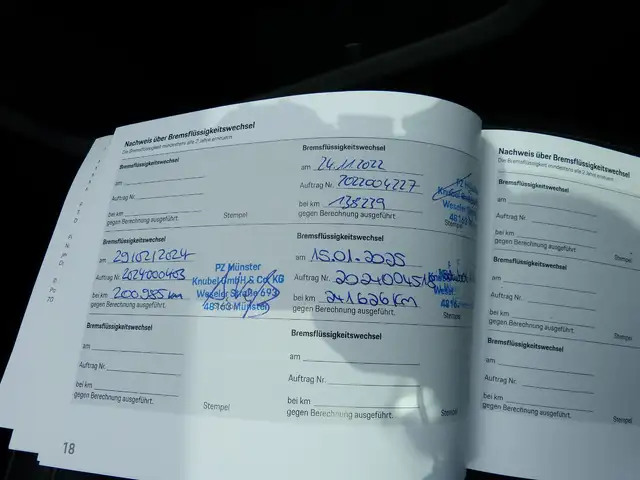 Nachweis über Bremsflüssigkeitswechsel
Die Bremsflüssigkeit mindestens alle 2 Jahre erneuern.
Bremsflüssigkeitswechsel
am
Auftrag Nr.
bei km
gegen Berechnung ausgeführt.
Stempel
Bremsflüssigkeitswechsel
am 24.11.2022
Auftrag Nr. 2022004227
bei km 138239
gegen Berechnung ausgeführt.
PZ Münster
Knubel
Weseler
48163
Bremsflüssigkeitswechsel
am 29/02/2024
Auftrag Nr. 2024000403
bei km 200.985 km
gegen Berechnung ausgeführt.
PZ Münster
Knubel GmbH & Co. KG
Weseler Straße 693
48163 Münster
Bremsflüssigkeitswechsel
am 15.01.2025
Auftrag Nr. 2024004518
bei km 241626 km
gegen Berechnung ausgeführt.
Stempel
48163
Bremsflüssigkeitswechsel
am
Auftrag Nr.
bei km
gegen Berechnung ausgeführt.
Stempel
Bremsflüssigkeitswechsel
am
Auftrag Nr.
bei km
gegen Berechnung ausgeführt.
Stempel
18
Nachweis über Bremsflüssigkeitswechsel
Die Bremsflüssigkeit mindestens alle 2 Jahre erneuern.
Bremsflüssigkeitswechsel
am
Auftrag Nr.
bei km
gegen Berechnung ausgeführt.
Stempel
Bremsflüssigkeitswechsel
am
Auftrag Nr.
bei km
gegen Berechnung ausgeführt.
Stempel
Bremsflüssigkeitswechsel
am
Auftrag Nr.
bei km
gegen Berechnung ausgeführt.
Stempel